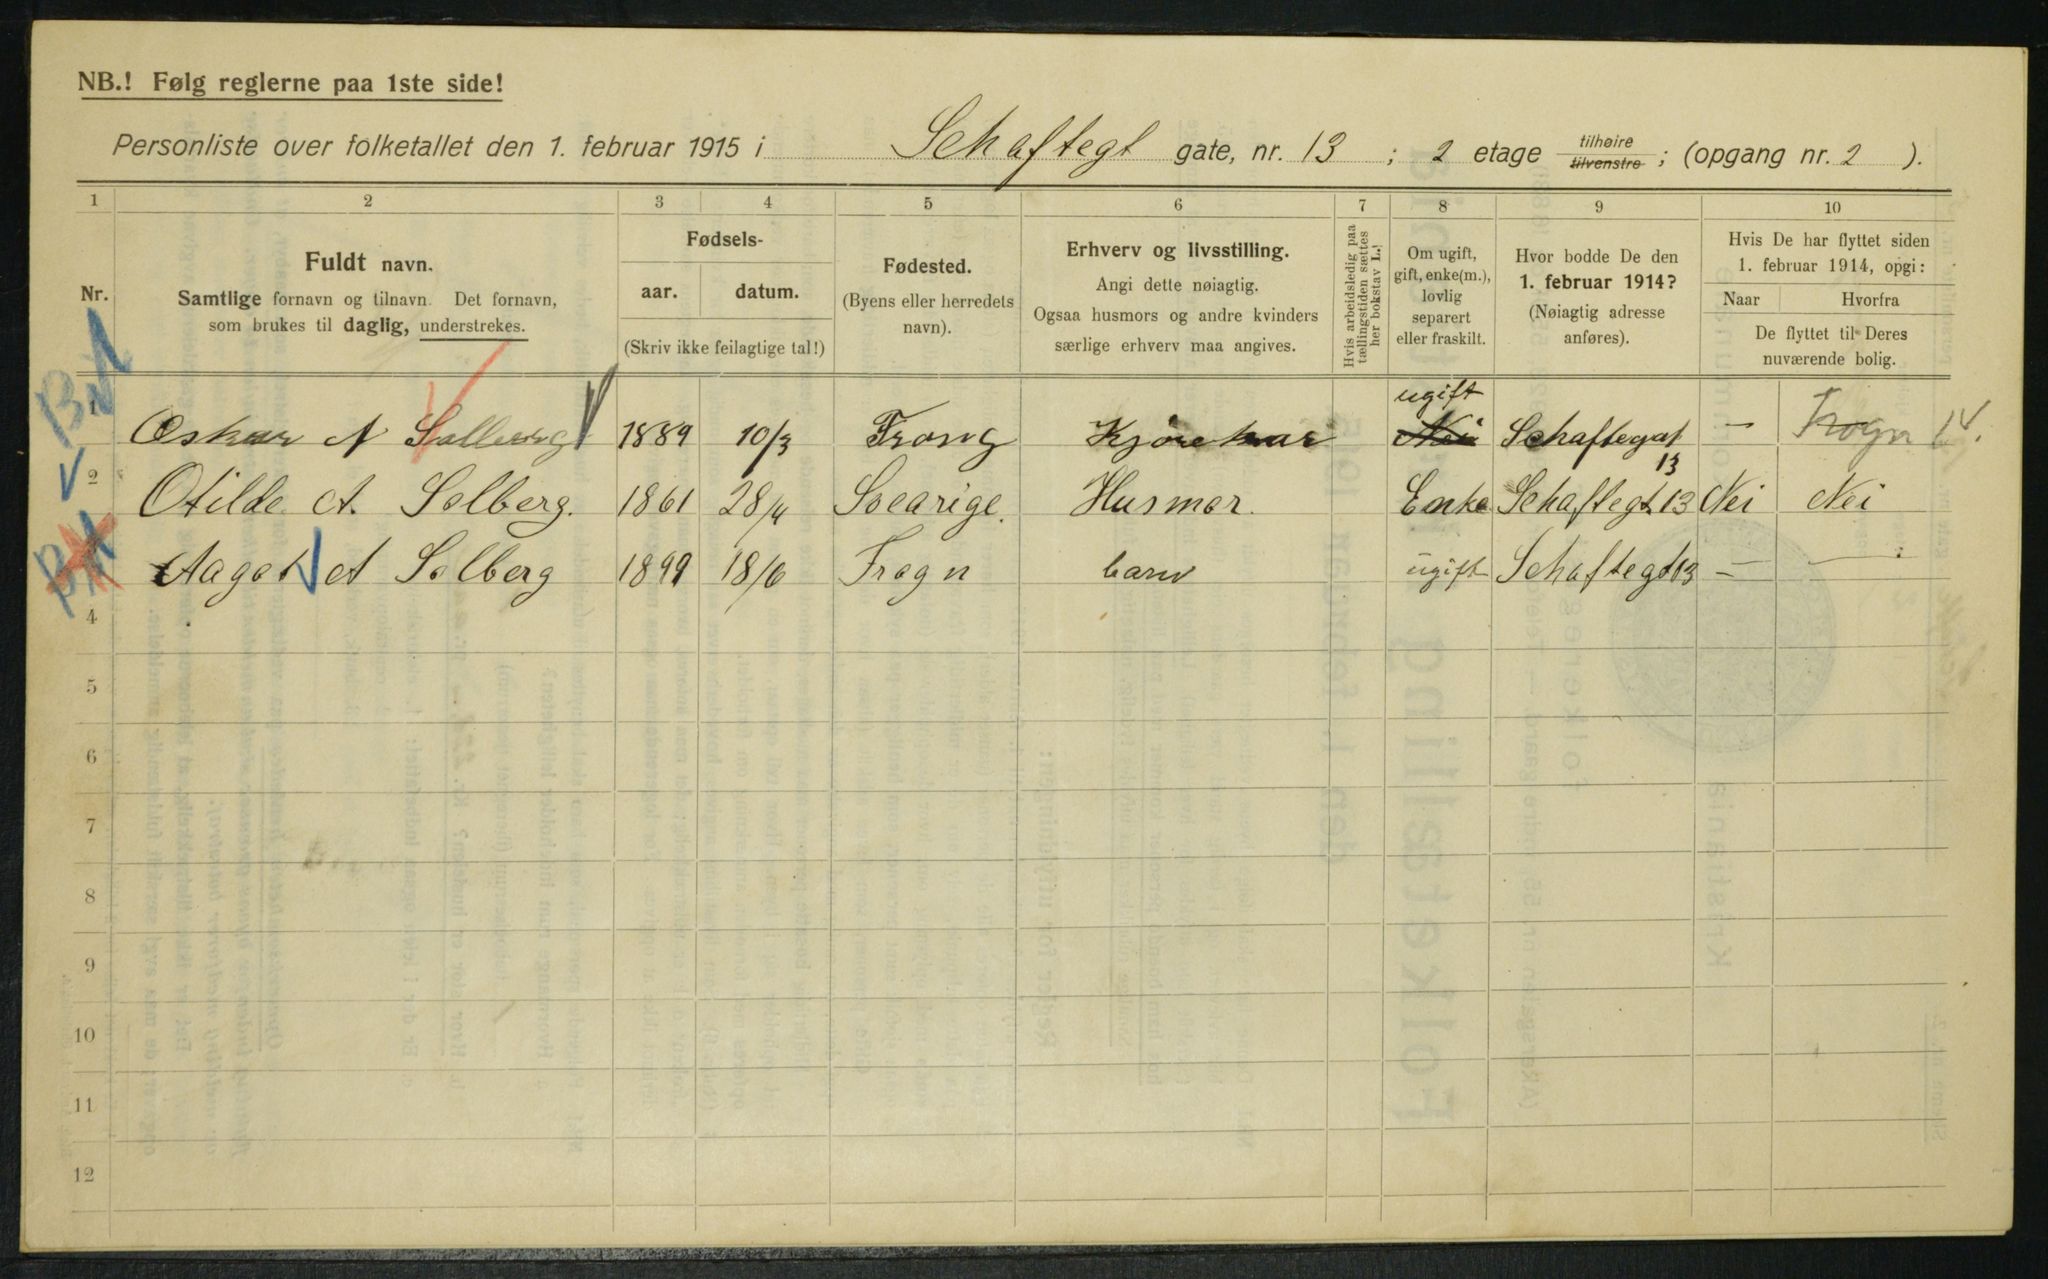 NB.! Følg reglerne paa 1ste side!
Personliste over folketallet den 1. februar 1915 i Schaftegt gate, nr. 13 ; 2 etage tilhøire tilvenstre ; (opgang nr. 2 ).
1 2 3 4 5 6 7 8 9 10
Nr.
Fuldt navn.
Samtlige fornavn og tilnavn. Det fornavn,
som brukes til daglig, understrekes.
Fødsels-
aar. datum.
(Skriv ikke feilagtige tal!)
Fødested.
(Byens eller herredets
navn).
Erhverv og livsstilling.
Angi dette nøiagtig.
Ogsaa husmors og andre kvinders
særlige erhverv maa angives.
Hvis arbeidsledig paa
tællingstiden sættes
her bokstav L.!
Om ugift,
gift, enke(m.),
lovlig
separert
eller fraskilt.
Hvor bodde De den
1. februar 1914?
(Nøiagtig adresse
anføres).
Hvis De har flyttet siden
1. februar 1914, opgi:
Naar Hvorfra
De flyttet til Deres
nuværende bolig.
ugift
1 Oskar A Solberg 1889 10/3 Frong Kjørekar Nei Schaftegat — Frogn
13
2 Otilde A. Solberg. 1861 28/4 Svearige. Husmor. Enke Schaftegt. 13 Nei Nei
Aagot A Solberg 1899 18/6 Frogn barn ugift Schaftegt 13 — —
4
5
6
7
8
9
10
11
12